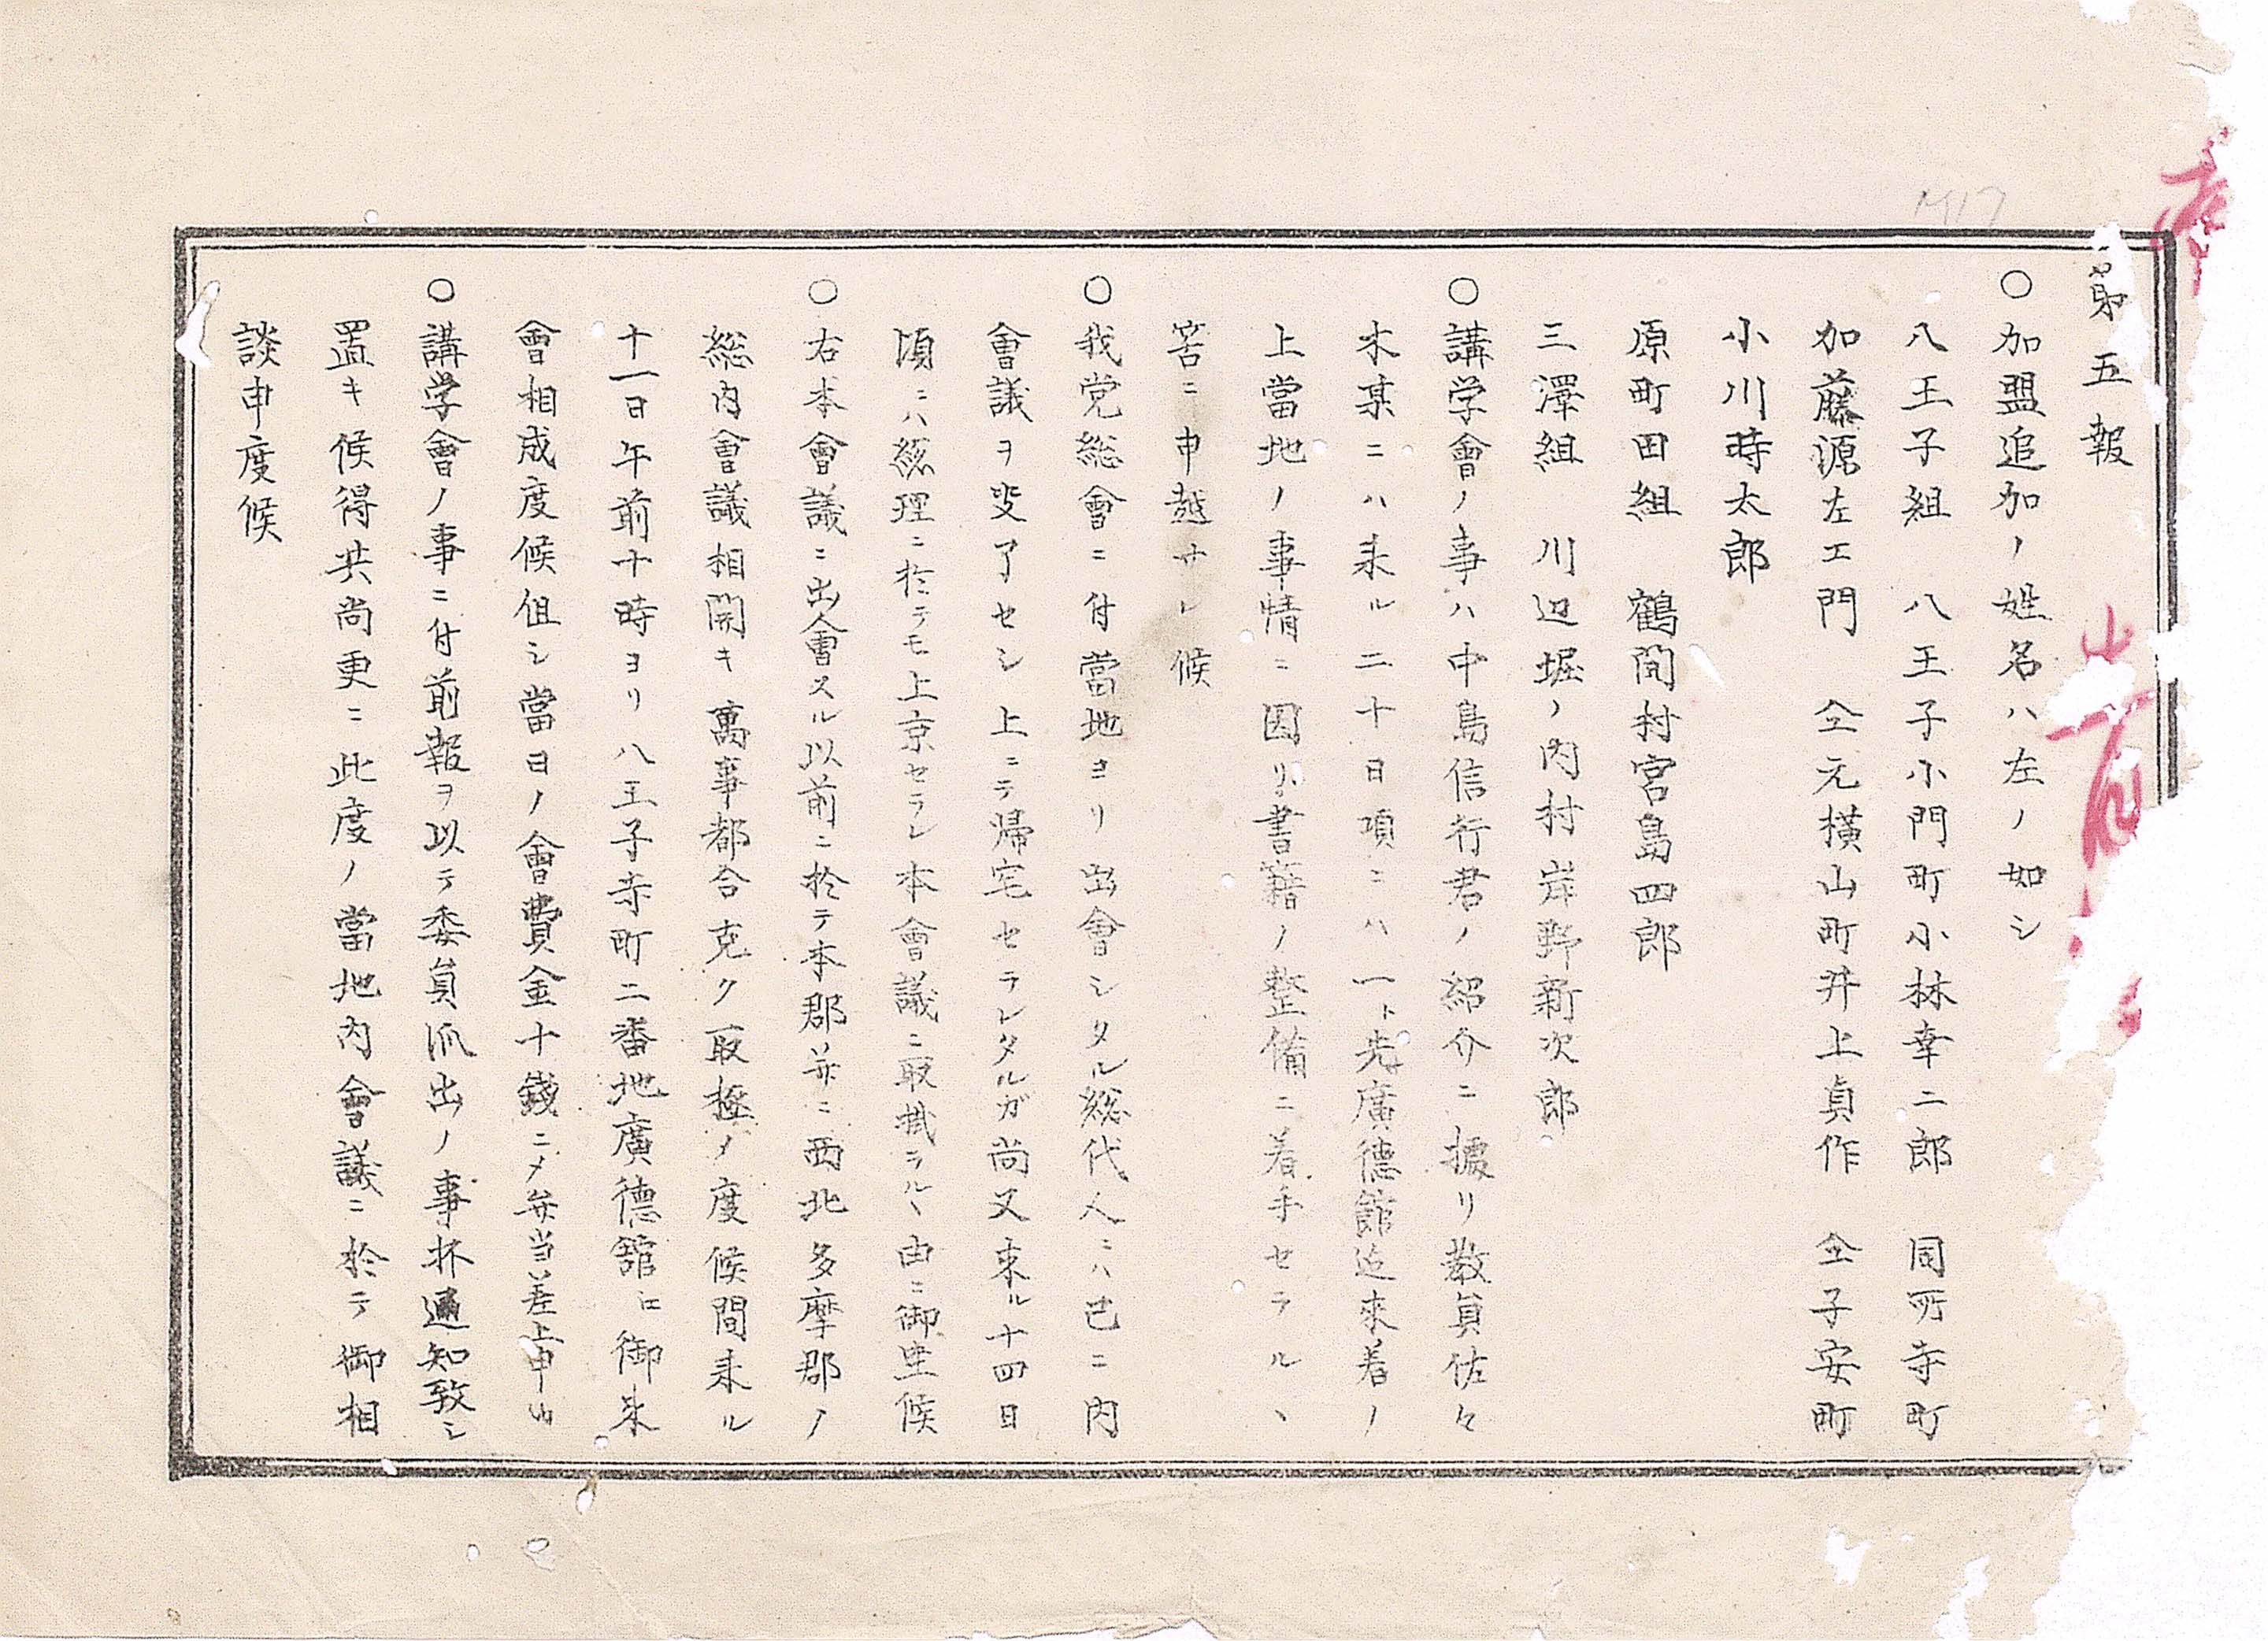 第五報
○加盟追加ノ姓名ハ左ノ如シ
八王子組 八王子小門町小林幸二郎 同所寺町
加藤源左エ門 仝元横山町井上貞作 仝子安町
小川時太郎
原町田組 鶴間村宮島四郎
三澤組 川辺堀ノ内村岸野新次郎
○講学會ノ事ハ中島信行君ノ紹介ニ據リ教員佐々
木某ニハ来ル二十日項ニハ一ト先廣德館迄來着ノ
上當地ノ事情ニ因リ書籍ノ整備ニ着手セラルヽ
筈ニ申越サレ候
○我党総會ニ付當地ヨリ出會シタル総代人ニハ已ニ内
會議ヲ畢了セシ上ニテ帰宅セラレタルガ尚又来ル十四日
頃ニハ総理ニ於テモ上京セラレ本會議ニ取掛ラルヽ由ニ御座候
○右本會議ニ出會スル以前ニ於テ本郡并ニ西北多摩郡ノ
総内會議相開キ萬事都合克ク取極メ度候間来ル
十一日午前十時ヨリ八王子寺町二番地廣德舘ニ御来
會相成度候但シ當日ノ會費金十錢ニメ弁当差上申候
○講学會ノ事ニ付前報ヲ以テ委員派出ノ事抔通知致シ
置キ候得共尚更ニ此度ノ當地内會議ニ於テ御相
談申度候
M17